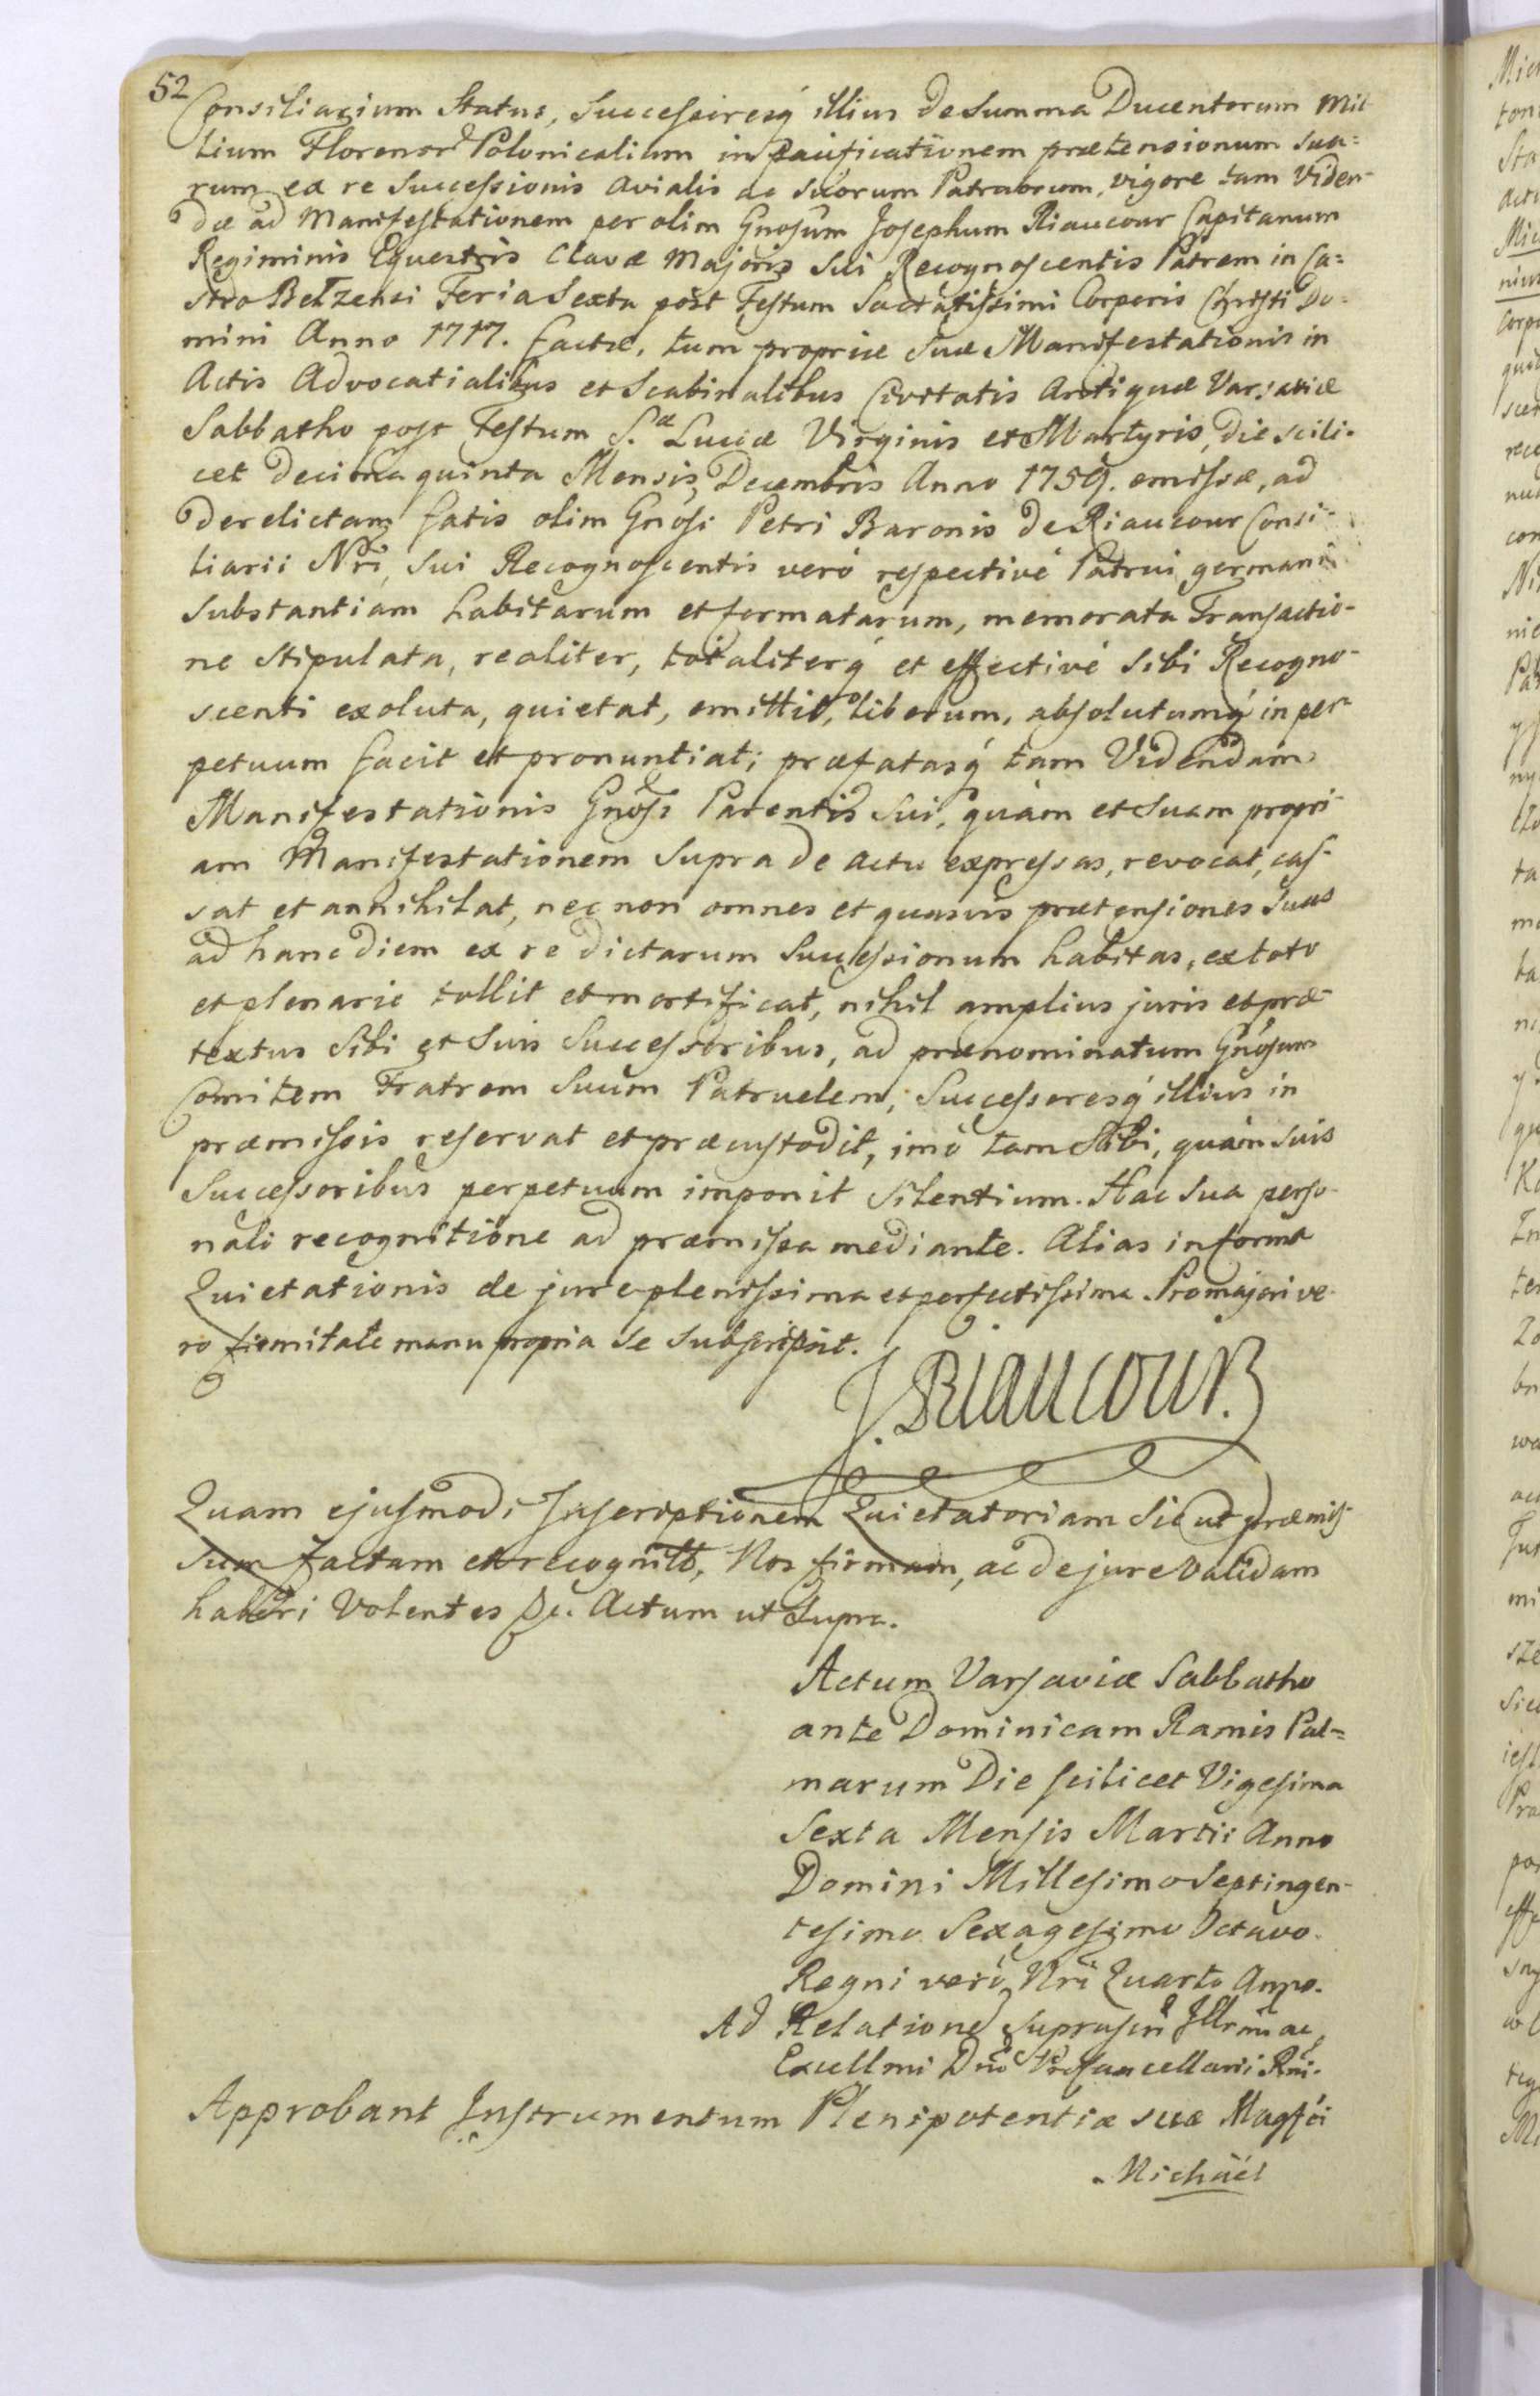 52
Consiliarium Status, Successoresq́ illius de Summa Ducentorum Mil
lium Florenor Polonicalium in pacificationem prætensionum sua=
rum ex re Successionis avialis ac suorum Patruorum, vigore tam Viden-
dæ ad Manifestationem per olim Gnosum Josephum Riaucour Capitanum
Regiminis Equestris Clavæ Majoris Sui Recognoscentis Patrem in Ca=
stro Betzensi Feria Sexta post Festum Sacratissimi Corporis Christi Do=
mini Anno 1717. factæ, tum propriæ suæ Manifestationis in
Actis Advocatialibus et Scabinalibus Civitatis Antiquæ Varsaviæ
Sabbatho post Festum S.æ Luciæ Virginis et Martyris, die scili-
cet decima quinta Mensis Decembris Anno 1759. emissæ, ad
derelictam fatis olim Gnosi Petri Baronis de Riaucour Consi-
liarii Nri, Sui Recognoscentis veró respectivé Patrui germani
Substantiam habitarum et formatarum, memorata Transactio-
ne stipulata, realiter, totaliterq́ et effectivé sibi Recogno-
scenti exoluta, quietat, omittit, liberum, absolutumq́ in per
petuum facit et pronuntiat; præfatasq́ tam Videndam
Manifestationis Gnosi Parentis sui, quàm et suam propri-
am Manifestationem supra de actu expressas, revocat, cas-
sat et annihilat, nec non omnes et quasvis prætensiones suas
ad hanc diem ex re dictarum Successionum habitas, ex toto
et plenarie tollit et mortificat, nihil amplius juris et præ-
textus sibi et suis Successoribus, ad prænominatum Gnosum
Comitem Fratrem Suum Patruelem, Successoresq́ illius in
præmissis reservat et præcustodit, imó tam Sibi, quàm suis
Successoribus perpetuum imponit Silentium. Hac sua perso-
nali recognitione ad præmissa mediante. Alias in forma
Quietationis de jure plenissima et perfectissima. Pro majori ve-
ro firmitate manu propria se subscripsit.
J. Riaucour.
Quam ejusmodi Inscriptionem Quietatoriam sic ut præmis-
sum factam et recognit, Nos firmam, ac de jure validam
haberi Volentes &c. Actum ut Supra.
Actum Varsaviæ Sabbatho
ante Dominicam Ramis Pal=
marum Die scilicet Vigesima
Sexta Mensis Martii Anno
Domini Millesimo Septingen-
tesimo Sexagesimo Octavo.
Regni veró Nri Quarto Anno.
Ad Relatione suprascri Illrmi ac
Excellmi Dni Procancellarii Rni.
Approbant Instrumentum Plenipotentiæ suæ Magfci
Michaël